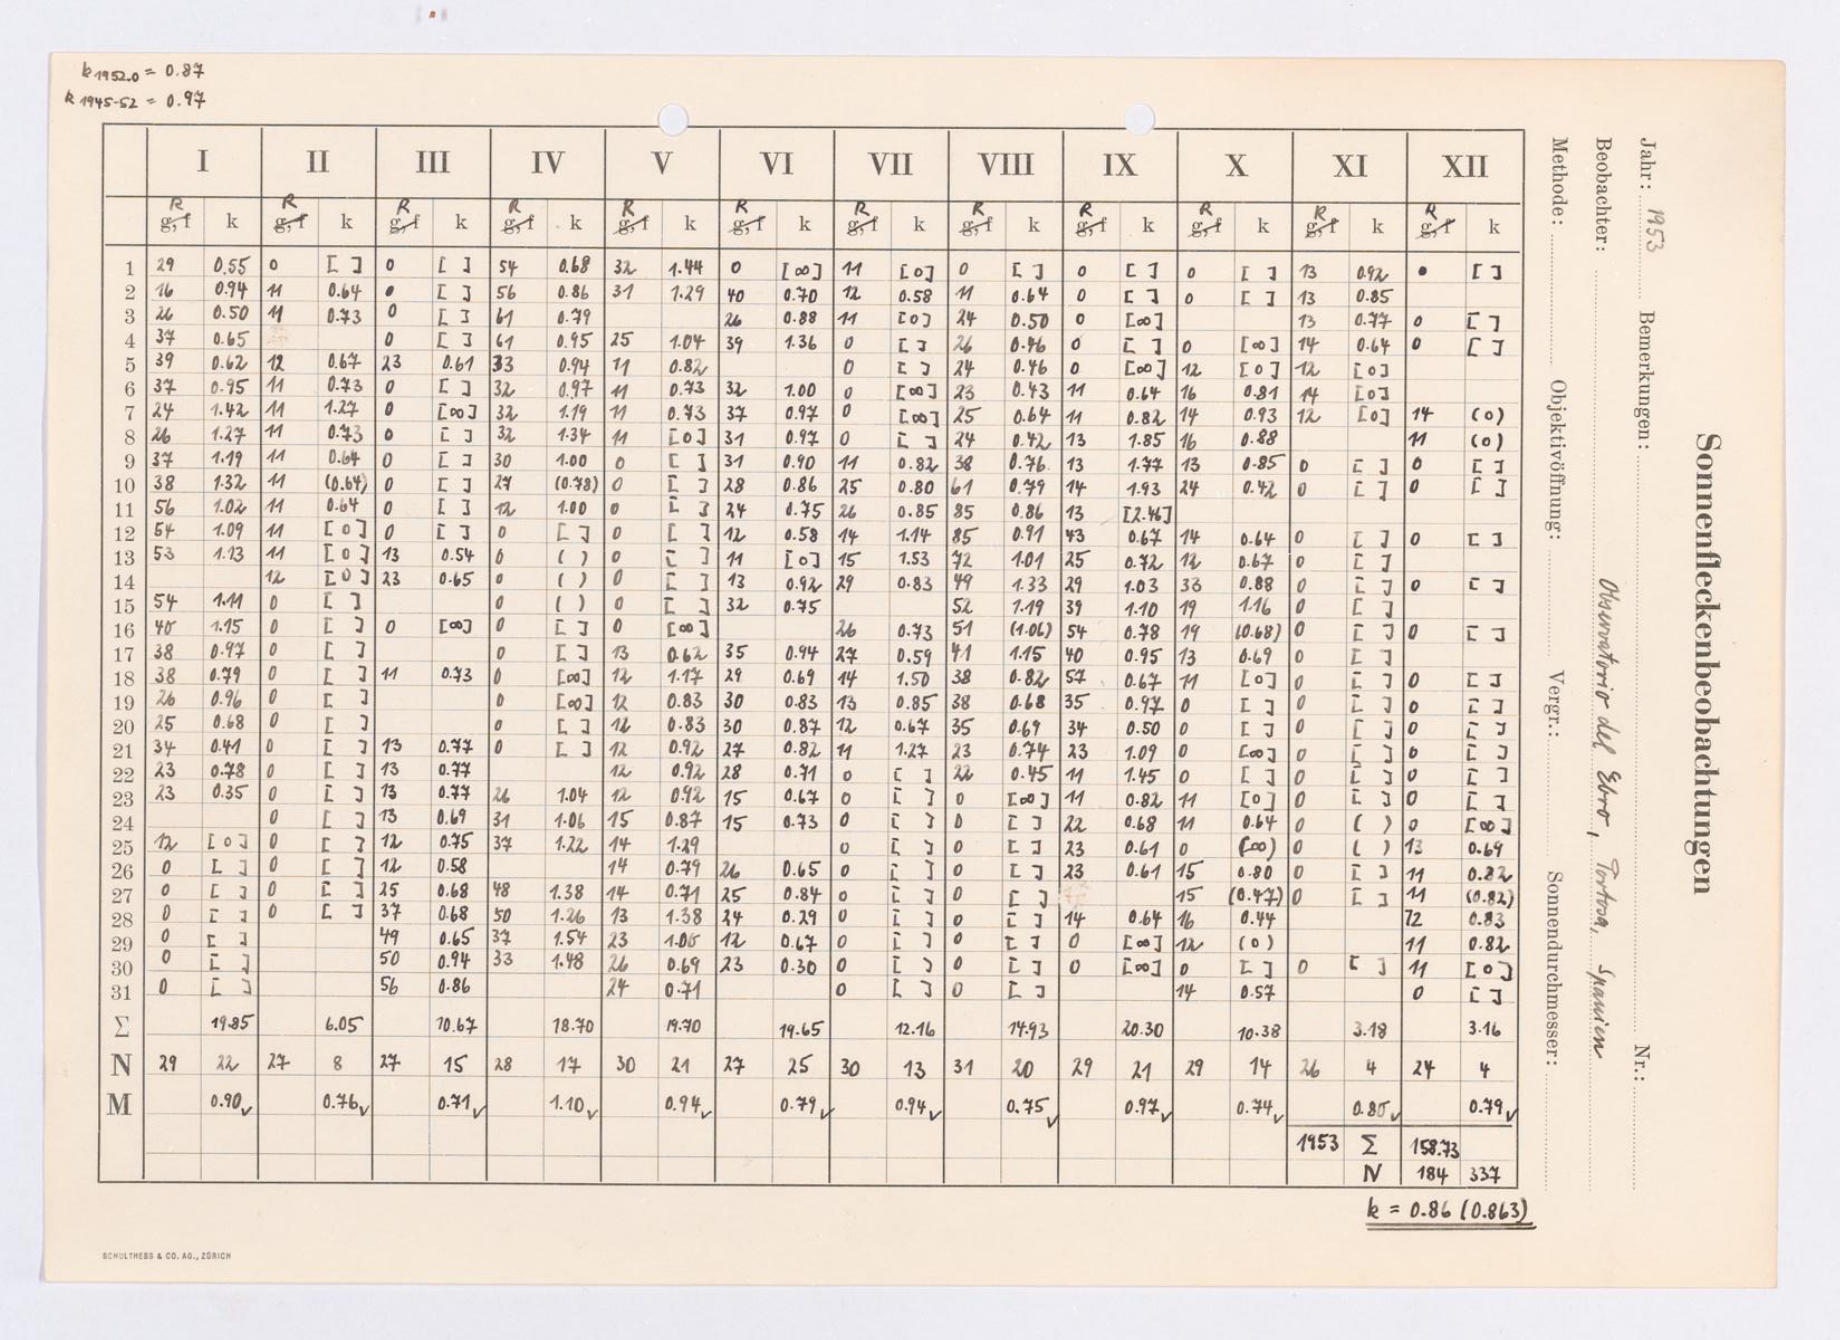 k 1952.0 = 0.87
k 1945-52 = 0.97
I II III IV V VI VII VIII IX X XI XII
R R R R R R R R R R R R
g, f k g, f k g, f k g, f k g, f k g, f k g, f k g, f k g, f k g, f k g, f k g, f k
1 29 0.55 0 [ ] 0 [ ] 54 0.68 32 1.44 0 [∞] 11 [0] 0 [ ] 0 [ ] 0 [ ] 13 0.92 • [ ]
2 16 0.94 11 0.64 • [ ] 56 0.86 31 1.29 40 0.70 12 0.58 11 0.64 0 [ ] 0 [ ] 13 0.85
3 26 0.50 11 0.73 0 [ ] 61 0.79 26 0.88 11 [0] 24 0.50 0 [∞] 13 0.77 0 [ ]
4 37 0.65 0 [ ] 61 0.95 25 1.04 39 1.36 0 [ ] 26 0.46 0 [ ] 0 [∞] 14 0.64 0 [ ]
5 39 0.62 12 0.67 23 0.61 33 0.94 11 0.82 0 [ ] 24 0.46 0 [∞] 12 [0] 12 [0]
6 37 0.95 11 0.73 0 [ ] 32 0.97 11 0.73 32 1.00 0 [∞] 23 0.43 11 0.64 16 0.81 14 [0]
7 24 1.42 11 1.27 0 [∞] 32 1.19 11 0.73 37 0.97 0 [∞] 25 0.64 11 0.82 14 0.93 12 [0] 14 (0)
8 26 1.27 11 0.73 0 [ ] 32 1.34 11 [0] 31 0.97 0 [ ] 24 0.42 13 1.85 16 0.88 11 (0)
9 37 1.19 11 0.64 0 [ ] 30 1.00 0 [ ] 31 0.90 11 0.82 38 0.76 13 1.77 13 0.85 0 [ ] 0 [ ]
10 38 1.32 11 (0.64) 0 [ ] 27 (0.78) 0 [ ] 28 0.86 25 0.80 61 0.79 14 1.93 24 0.42 0 [ ] 0 [ ]
11 56 1.02 11 0.64 0 [ ] 12 1.00 0 [ ] 24 0.75 26 0.85 85 0.86 13 [2.46]
12 54 1.09 11 [0] 0 [ ] 0 [ ] 0 [ ] 12 0.58 14 1.14 85 0.91 43 0.67 14 0.64 0 [ ] 0 [ ]
13 53 1.13 11 [0] 13 0.54 0 ( ) 0 [ ] 11 [0] 15 1.53 72 1.01 25 0.72 12 0.67 0 [ ]
14 12 [0] 23 0.65 0 ( ) 0 [ ] 13 0.92 29 0.83 49 1.33 29 1.03 33 0.88 0 [ ] 0 [ ]
15 54 1.11 0 [ ] 0 ( ) 0 [ ] 32 0.75 52 1.19 39 1.10 19 1.16 0 [ ]
16 40 1.15 0 [ ] 0 [∞] 0 [ ] 0 [∞] 26 0.73 51 (1.06) 54 0.78 19 (0.68) 0 [ ] 0 [ ]
17 38 0.97 0 [ ] 0 [ ] 13 0.62 35 0.94 27 0.59 41 1.15 40 0.95 13 0.69 0 [ ]
18 38 0.79 0 [ ] 11 0.73 0 [∞] 12 1.17 29 0.69 14 1.50 38 0.82 57 0.67 11 [0] 0 [ ] 0 [ ]
19 26 0.96 0 [ ] 0 [∞] 12 0.83 30 0.83 13 0.85 38 0.68 35 0.97 0 [ ] 0 [ ] 0 [ ]
20 25 0.68 0 [ ] 0 [ ] 12 0.83 30 0.87 12 0.67 35 0.69 34 0.50 0 [ ] 0 [ ] 0 [ ]
21 34 0.41 0 [ ] 13 0.77 0 [ ] 12 0.92 27 0.82 11 1.27 23 0.74 23 1.09 0 [∞] 0 [ ] 0 [ ]
22 23 0.78 0 [ ] 13 0.77 12 0.92 28 0.71 0 [ ] 22 0.45 11 1.45 0 [ ] 0 [ ] 0 [ ]
23 23 0.35 0 [ ] 13 0.77 26 1.04 12 0.92 15 0.67 0 [ ] 0 [∞] 11 0.82 11 [0] 0 [ ] 0 [ ]
24 0 [ ] 13 0.69 31 1.06 15 0.87 15 0.73 0 [ ] 0 [ ] 22 0.68 11 0.64 0 ( ) 0 [∞]
25 12 [0] 0 [ ] 12 0.75 37 1.22 14 1.29 0 [ ] 0 [ ] 23 0.61 0 (∞) 0 ( ) 13 0.69
26 0 [ ] 0 [ ] 12 0.58 14 0.79 26 0.65 0 [ ] 0 [ ] 23 0.61 15 0.80 0 [ ] 11 0.82
27 0 [ ] 0 [ ] 25 0.68 48 1.38 14 0.71 25 0.84 0 [ ] 0 [ ] 15 (0.47) 0 [ ] 11 (0.82)
28 0 [ ] 0 [ ] 37 0.68 50 1.26 13 1.38 24 0.29 0 [ ] 0 [ ] 14 0.64 16 0.44 12 0.83
29 0 [ ] 49 0.65 37 1.54 23 1.00 12 0.67 0 [ ] 0 [ ] 0 [∞] 12 (0) 11 0.82
30 0 [ ] 50 0.94 33 1.48 26 0.69 23 0.30 0 [ ] 0 [ ] 0 [∞] 0 [ ] 0 [ ] 11 [0]
31 0 [ ] 56 0.86 24 0.71 0 [ ] 0 [ ] 14 0.57 0 [ ]
Σ 19.85 6.05 10.67 18.70 19.70 19.65 12.16 14.93 20.30 10.38 3.18 3.16
N 29 22 27 8 27 15 28 17 30 21 27 25 30 13 31 20 29 21 29 14 26 4 24 4
M 0.90✓ 0.76✓ 0.71✓ 1.10✓ 0.94✓ 0.79✓ 0.94✓ 0.75✓ 0.97✓ 0.74✓ 0.80✓ 0.79✓
1953 Σ 158.73
N 184 337
k = 0.86 (0.863)
SCHULTHESS & CO. AG., ZÜRICH
Sonnenfleckenbeobachtungen
Jahr: 1953 Bemerkungen: Nr.:
Beobachter: Observatorio del Ebro, Tortosa, Spanien
Methode: Objektivöffnung: Vergr.: Sonnendurchmesser: